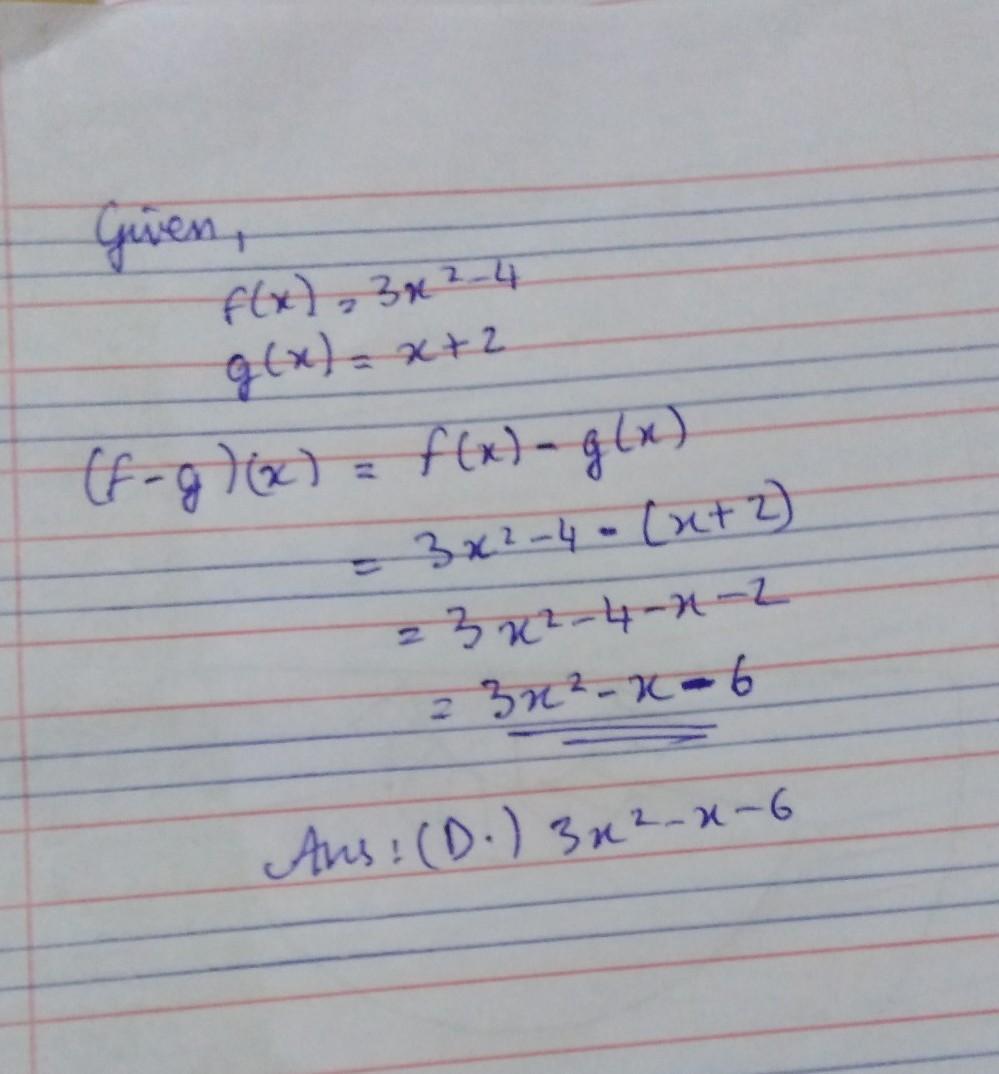 Given,
f(x) = 3x² - 4
g(x) = x + 2
(f - g)(x) = f(x) - g(x)
= 3x² - 4 - (x + 2)
= 3x² - 4 - x - 2
= 3x² - x - 6
Ans : (D.) 3x² - x - 6